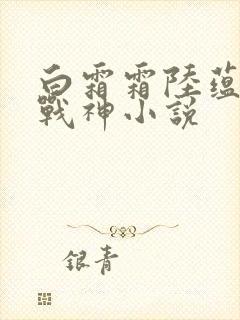 白霜霜陸蘊
戰神小說
銀青